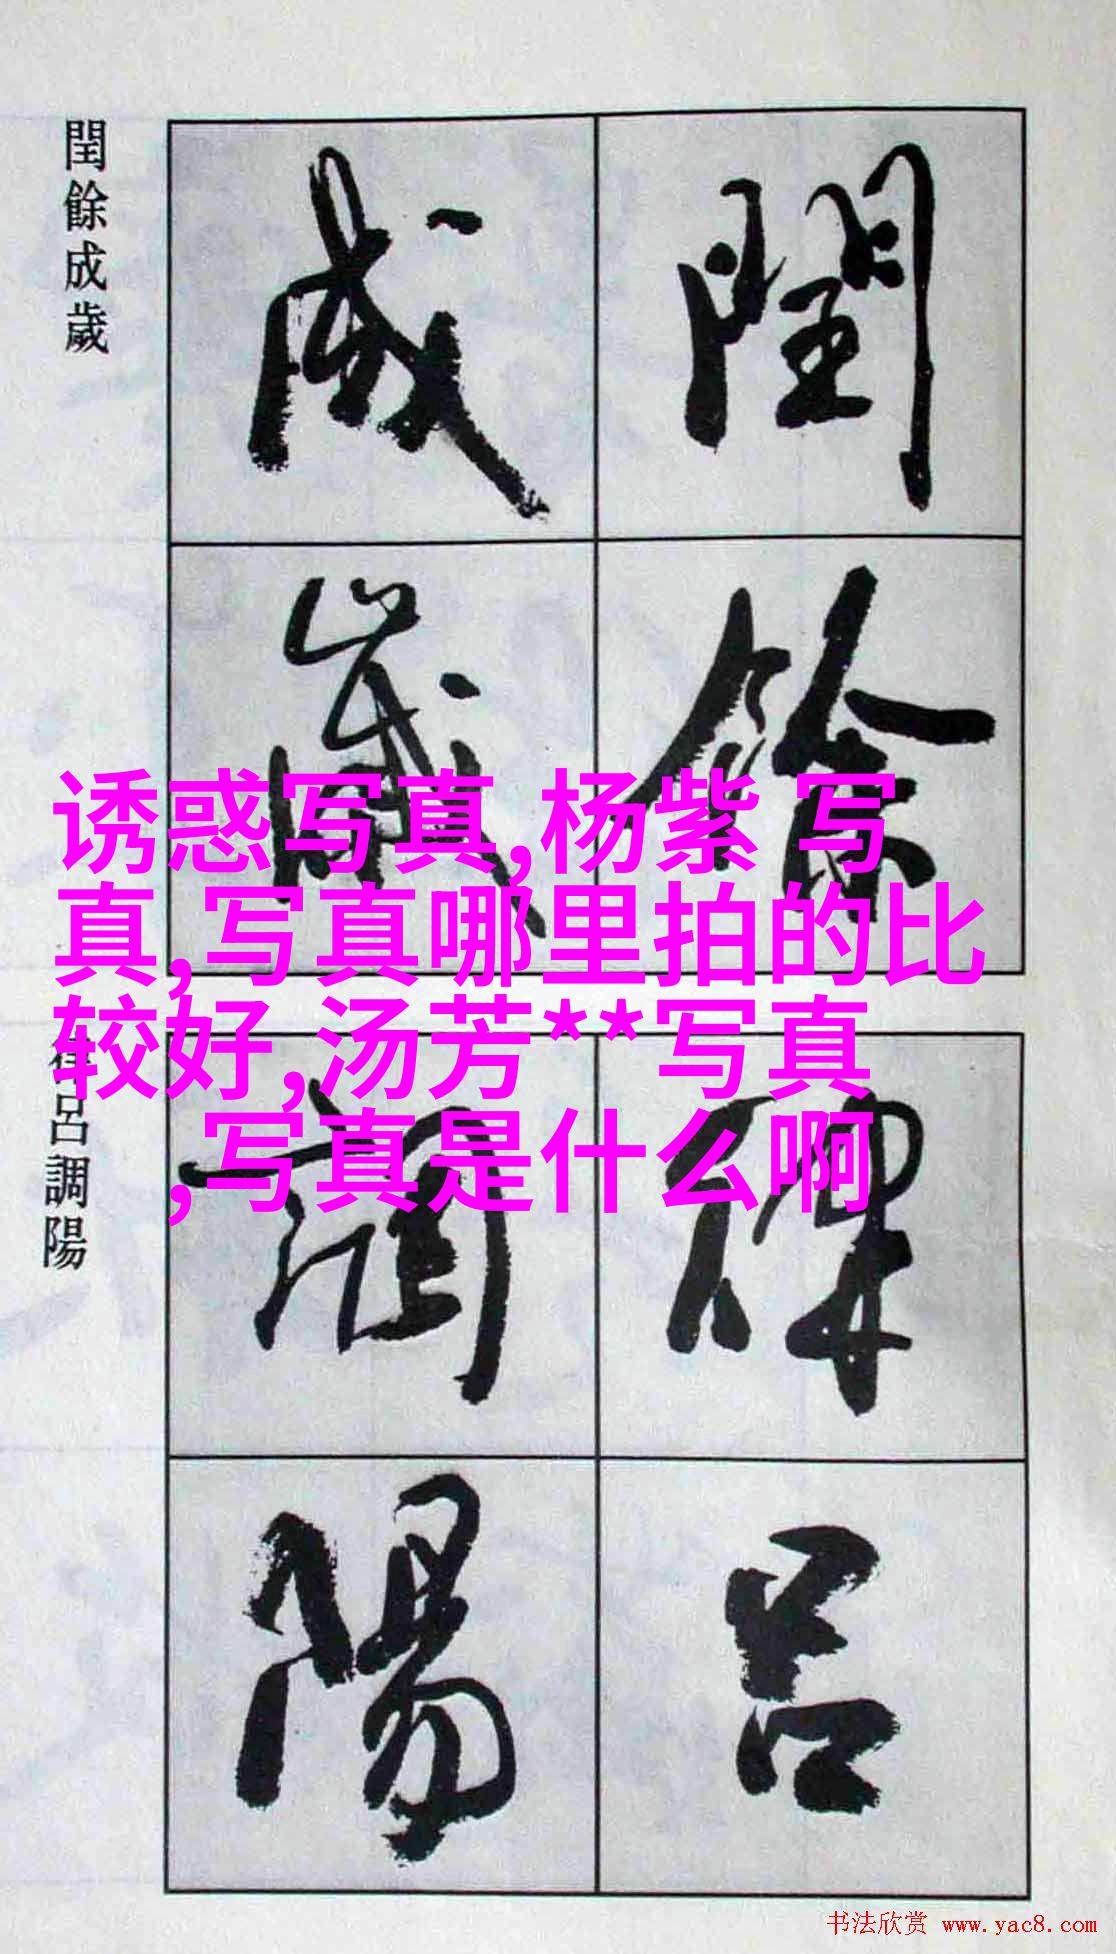 閏餘成歲
閏餘
成歲
誘惑写真,杨紫 写
真,写真哪里拍的比
较好,汤芳**写真
,写真是什么啊
律呂調陽
律呂
調陽
书法欣赏 www.yac8.com